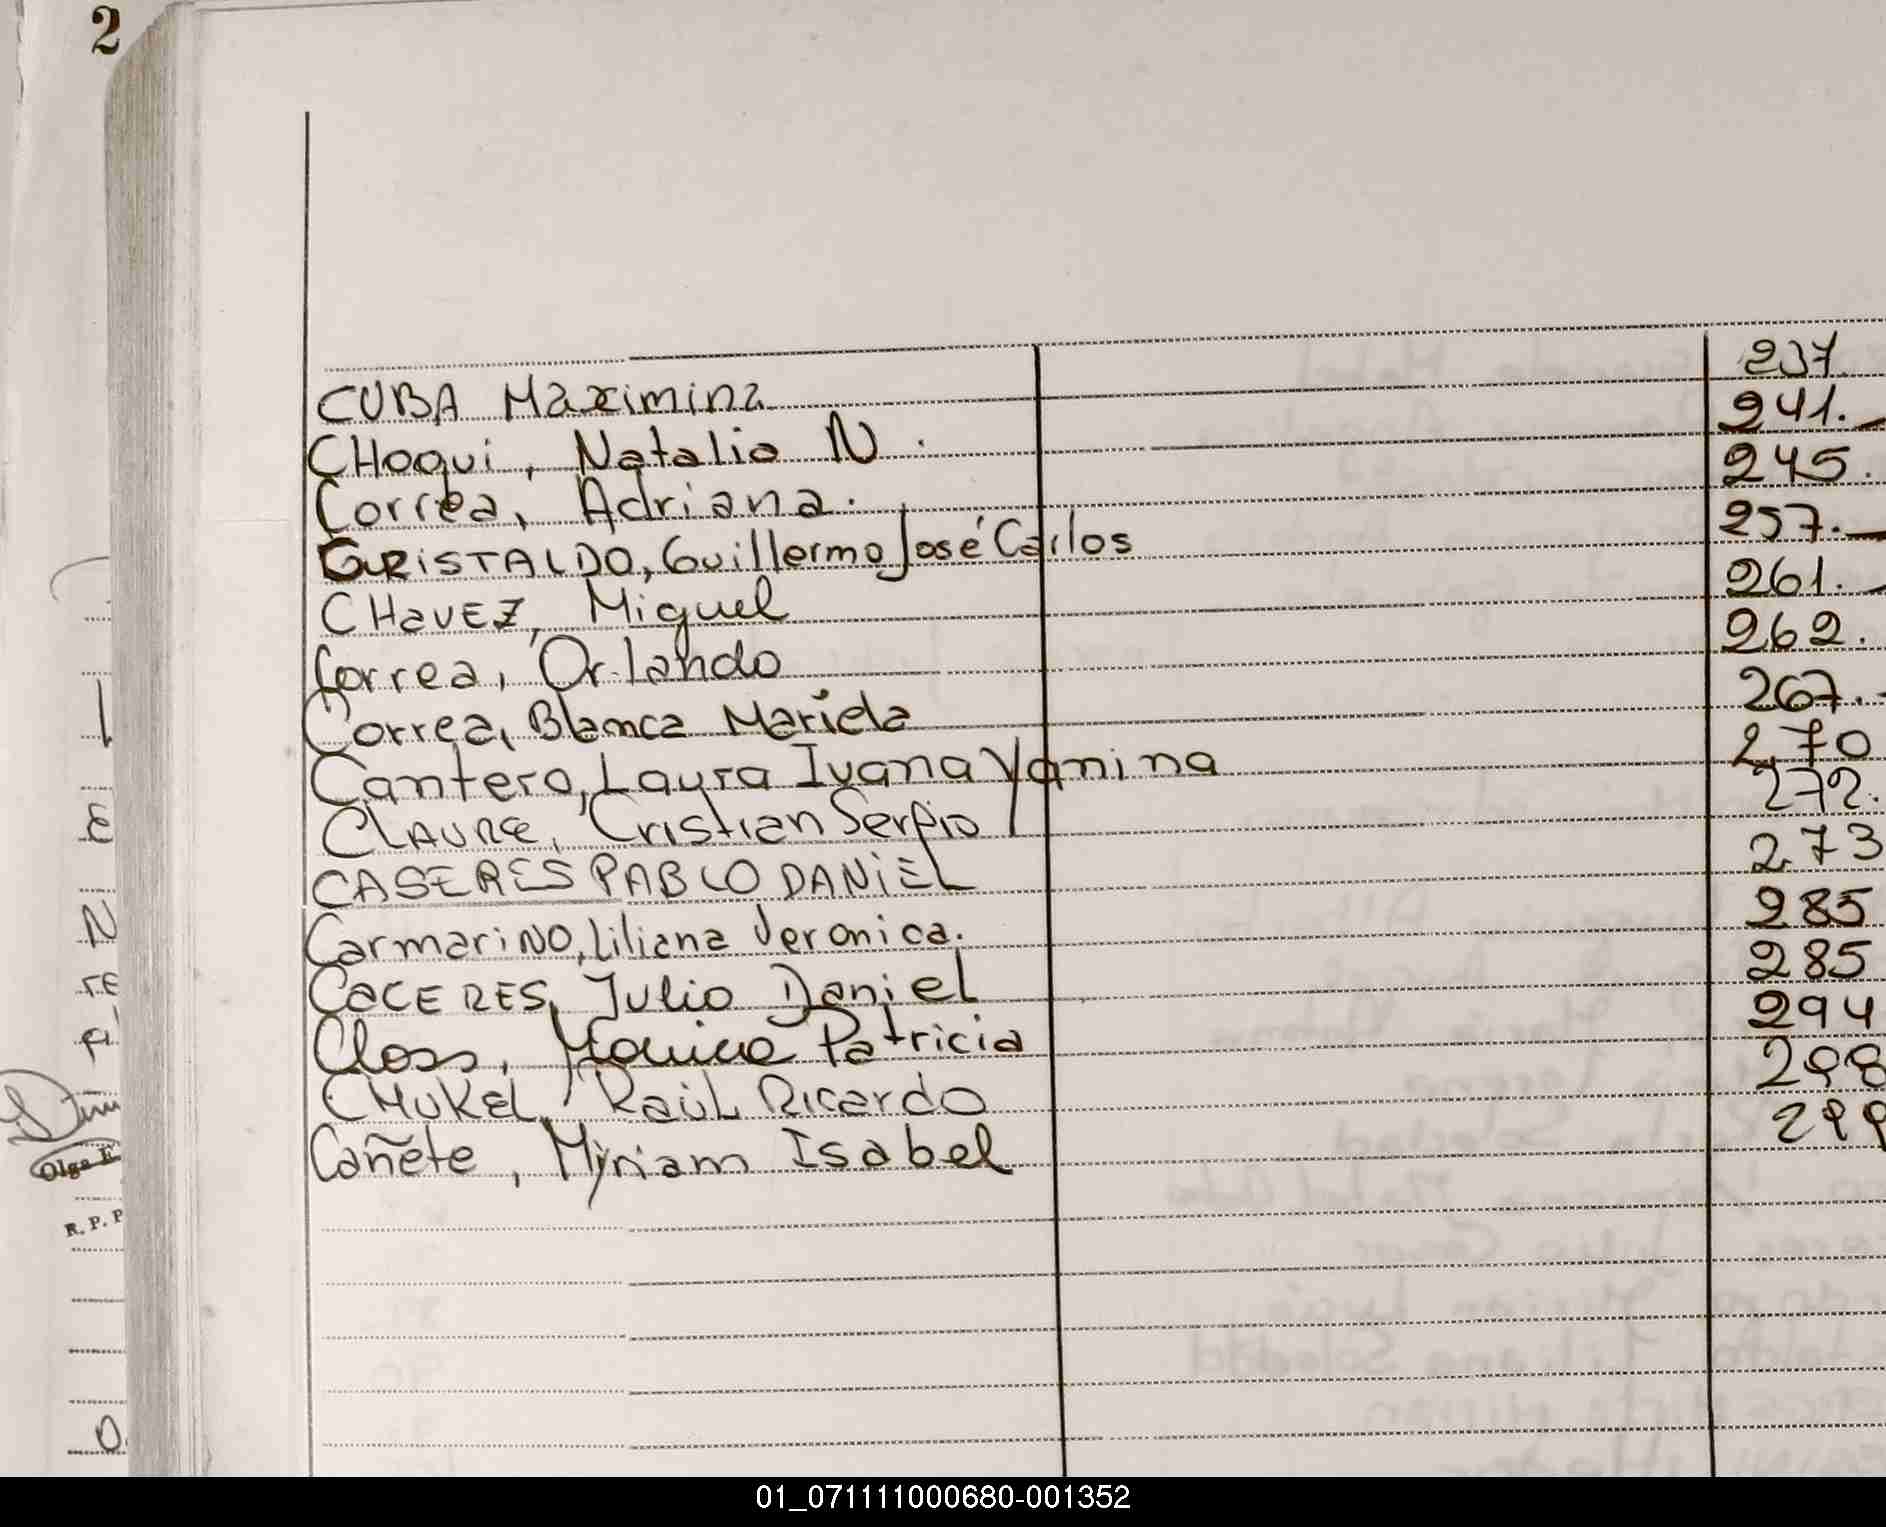 2
CUBA Maximina 237.
CHOQUI, Natalia N. 241.
Correa, Adriana. 245.
CRISTALDO, Guillermo José Carlos 257.
CHAVEZ, Miguel 261.
Correa, Orlando 262.
Correa, Blanca Mariela 267.
Cantero, Laura Ivana Yanina 270
CLAURE, Cristian Sergio 272.
CASERES PABLO DANIEL 273
CarmariNO, Liliana Veronica. 285
CaCERES, Julio Daniel 285
Closs, Monica Patricia 294
CHUKEL, Raúl Ricardo 298
Cañete, Myriam Isabel 299
Olga E
R. P. P
01_071111000680-001352